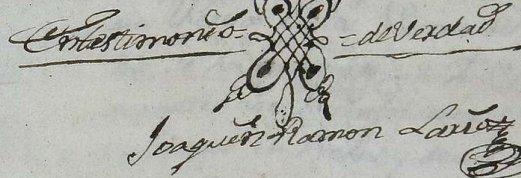 En testimonio = = de Verdad
Joaquin Ramon